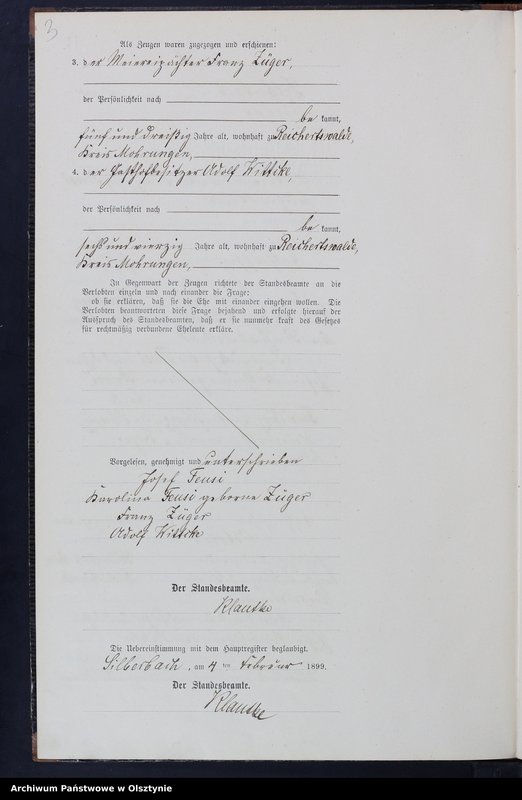 3
Als Zeugen waren zugezogen und erschienen:
3. der Meiereipächter Franz Züger,
der Persönlichkeit nach
be kannt,
fünf und dreißig Jahre alt, wohnhaft zu Reichertswalde,
Kreis Mohrungen,
4. der Gasthofbesitzer Adolf Wittke,
der Persönlichkeit nach
be kannt,
sechs und vierzig Jahre alt, wohnhaft zu Reichertswalde,
Kreis Mohrungen,
In Gegenwart der Zeugen richtete der Standesbeamte an die
Verlobten einzeln und nach einander die Frage:
ob sie erklären, daß sie die Ehe mit einander eingehen wollen. Die
Verlobten beantworteten diese Frage bejahend und erfolgte hierauf der
Ausspruch des Standesbeamten, daß er sie nunmehr kraft des Gesetzes
für rechtmäßig verbundene Eheleute erkläre.
Vorgelesen, genehmigt und unterschrieben
Josef Feusi
Karolina Feusi geborne Züger
Franz Züger
Adolf Wittke
Der Standesbeamte.
Klautke
Die Uebereinstimmung mit dem Hauptregister beglaubigt.
Silberbach, am 4 ten Februar 1899.
Der Standesbeamte.
Klautke
Archiwum Państwowe w Olsztynie